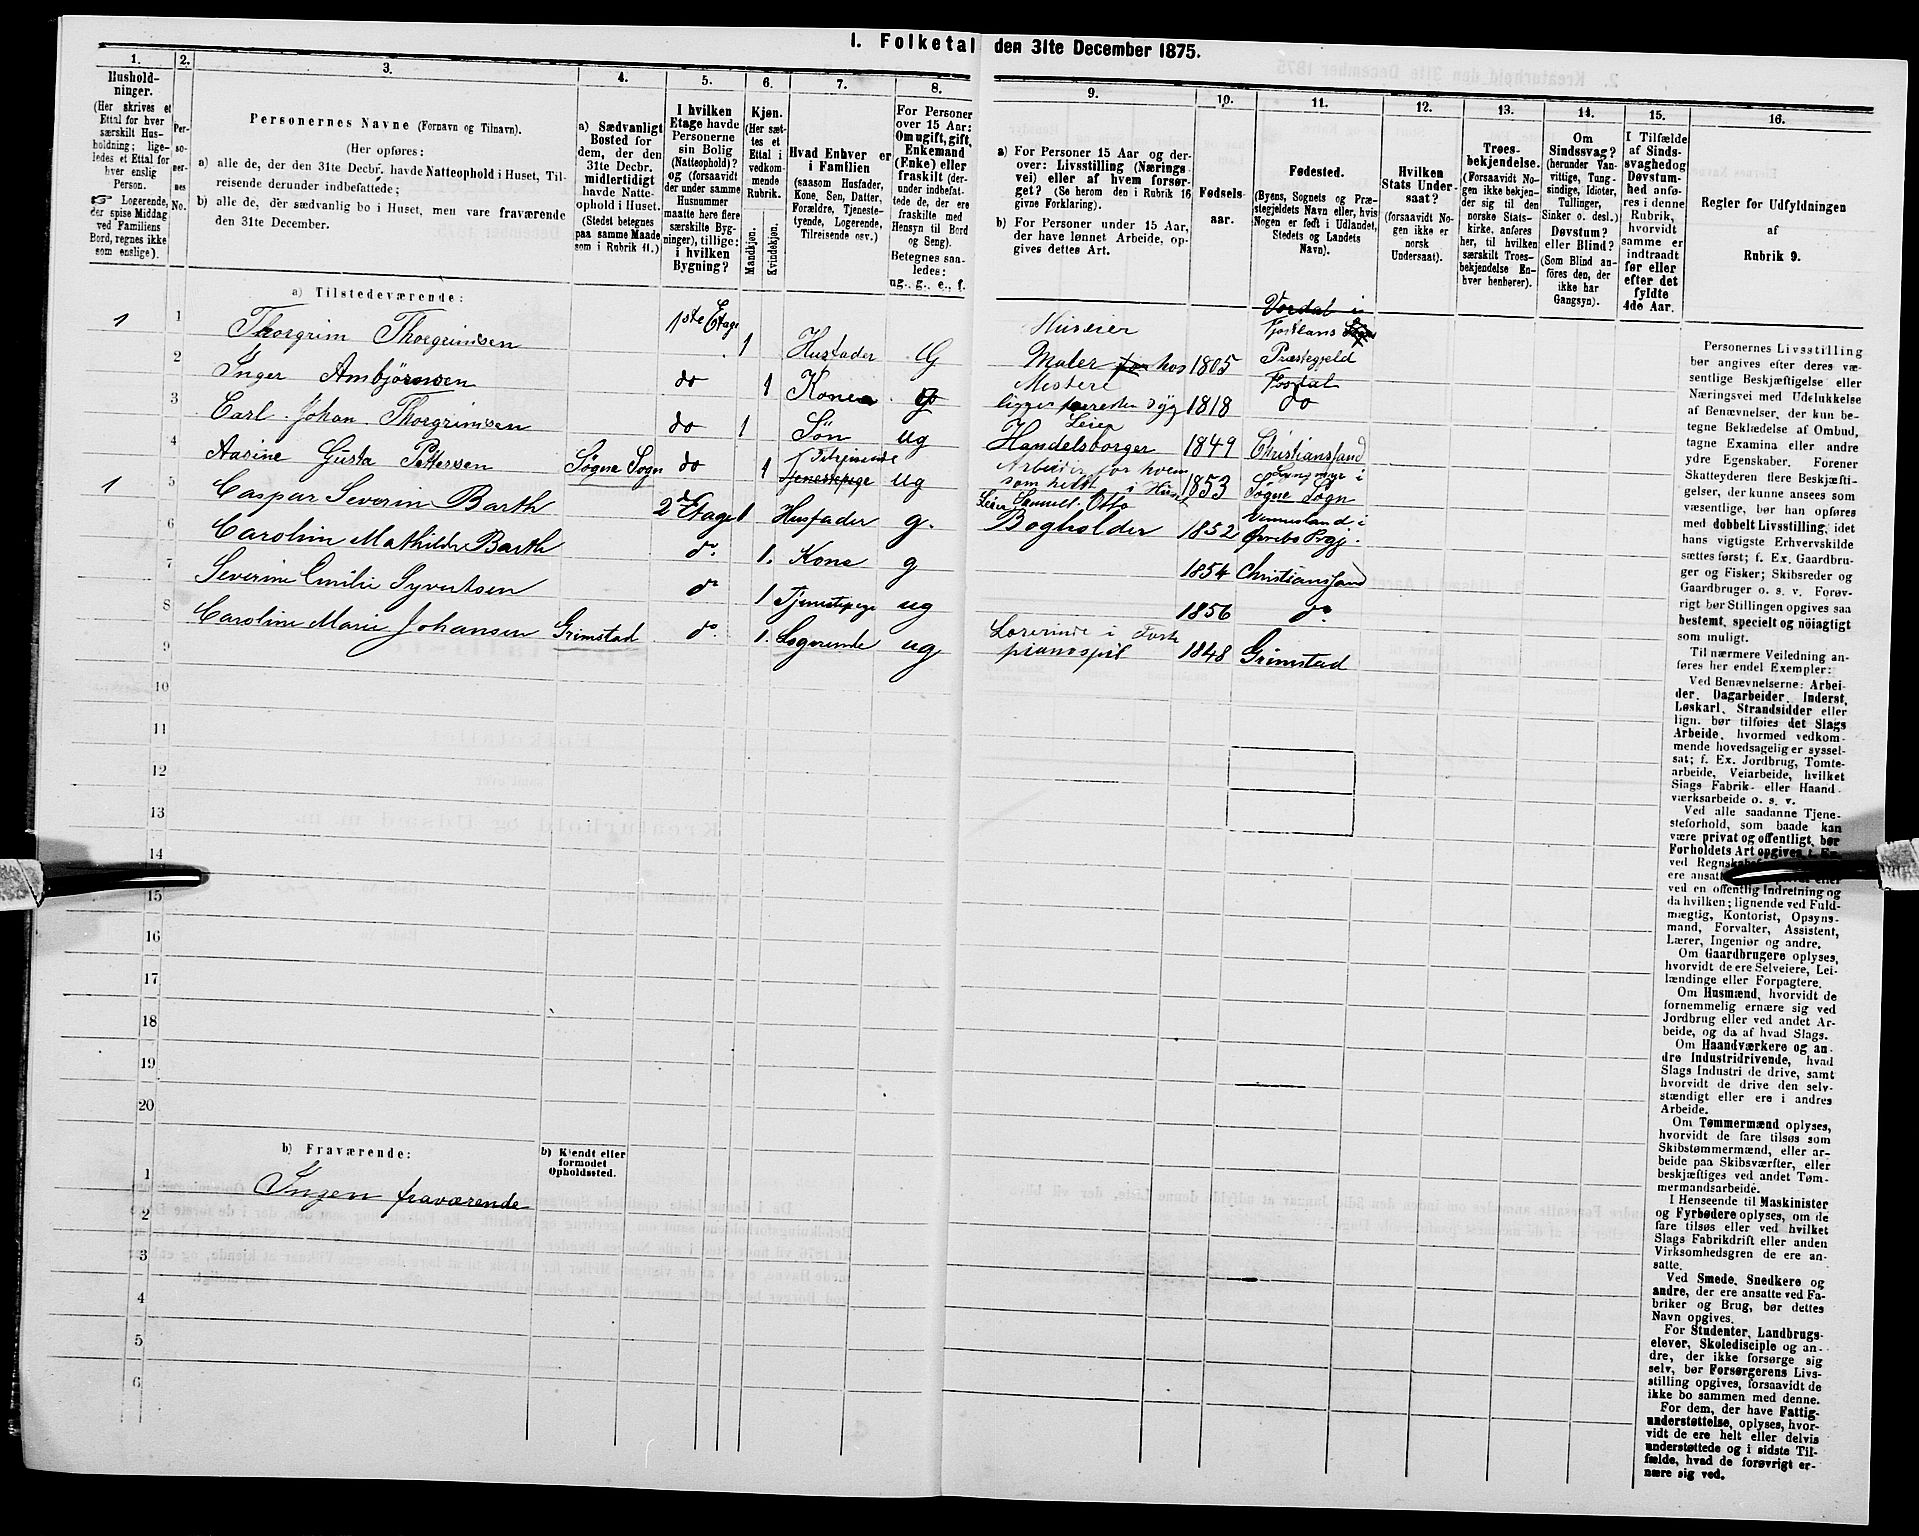 1. Folketal den 31te December 1875.
1.
Hushold-
ninger.
(Her skrives et
Ettal for hver
særskilt Hus-
holdning; lige-
ledes et Ettal for
hver enslig
Person.
☞ Logerende,
der spise Middag
ved Familiens
Bord, regnes ikke
som enslige).
2.
Per-
so-
ner-
nes
No.
3.
Personernes Navne (Fornavn og Tilnavn).
(Her opføres:
a) alle de, der den 31te Decbr. havde Natteophold i Huset, Til-
reisende derunder indbefattede;
b) alle de, der sædvanlig bo i Huset, men vare fraværende
den 31te December.
4.
a) Sædvanligt
Bosted for
dem, der den
31te Decbr.
midlertidigt
havde Natte-
ophold i Huset.
(Stedet betegnes
paa samme Maade
som i Rubrik 11.)
5.
I hvilken
Etage havde
Personerne
sin Bolig
(Natteophold)?
og (forsaavidt
der under samme
Husnummer
maatte høre flere
særskilte Byg-
ninger), tillige:
i hvilken
Bygning?
6.
Kjøn.
(Her sæt-
tes et
Ettal i
vedkom-
mende
Rubrik.
Mandkjøn.
Kvindekjøn.
7.
Hvad Enhver er
i Familien
(saasom Husfader,
Kone, Søn, Datter,
Forældre, Tjeneste-
tyende, Logerende,
Tilreisende osv.)
8.
For Personer
over 15 Aar:
Om ugift, gift,
Enkemand
(Enke) eller
fraskilt (der-
under indbefat-
tede de, der ere
fraskilte med
Hensyn til Bord
og Seng).
Betegnes saa-
ledes:
ug., g., e., f.
9.
a) For Personer 15 Aar og der-
over: Livsstilling (Nærings-
vei) eller af hvem forsør-
get? (Se herom den i Rubrik 16
givne Forklaring).
b) For Personer under 15 Aar,
der have lønnet Arbeide, op-
gives dettes Art.
10.
Fødsels-
aar.
11.
Fødested.
(Byens, Sognets og Præ-
stegjeldets Navn eller, hvis
Nogen er født i Udlandet,
Stedets og Landets
Navn).
12.
Hvilken
Stats Under-
saat?
(forsaavidt No-
gen ikke er
norsk
Undersaat).
13.
Troes-
bekjendelse.
(Forsaavidt No-
gen ikke bekjen-
der sig til den
norske Stats-
kirke, anføres
her, til hvilken
særskilt Troes-
bekjendelse En-
hver henhører).
14.
Om
Sindssvag?
(herunder Van-
vittige, Tung-
sindige, Idioter,
Tullinger,
Sinker o. desl.)
Døvstum?
eller Blind?
(Som Blind an-
føres den, der
ikke har
Gangsyn).
15.
I Tilfælde
af Sinds-
svaghedog
Døvstum-
hed anfø-
res i denne
Rubrik,
hvorvidt
samme er
indtraadt
før eller
efter det
fyldte
4de Aar.
16.
Regler for Udfyldningen
af
Rubrik 9.
a) Tilstedeværende:
1 1 Thorgrim Thorgrimsen 1ste Etage 1 Husfader G Huseier Maler hos Mestere 1805 Præstegjeld
2 Inger Ambjörnsen do 1 Kone g 1818 do
3 Carl Johan Thorgrimsen do 1 Søn ug Handelsborger 1849 Christianssand
4 Aasine Gusta Pettersen Søgne Sogn do 1 Tilreisende Tjenestepige ug 1853 Søgne Sogn
1 5 Caspar Severin Barth 2d Etage 1 Husfader g. Bogholder 1852 Vennesland i Øvrebø Prgj.
6 Carolin Mathilde Barth do 1. Kone g 1854 Christianssand
7 Severine Emilie Syvertsen do 1 Tjenestepige ug 1856 do
8 Caroline Marie Johansen Grimstad do. 1. Logerende ug Lærerinde i pianospil 1848 Grimstad
9
10
11
12
13
14
15
16
17
18
19
20
b) Fraværende:
b) Kjendt eller
formodet
Opholdssted.
1 Ingen fraværende
2
3
4
5
6
Personernes Livsstilling
bør angives efter deres væ-
sentlige Beskjæftigelse eller
Næringsvei med Udelukkelse
af Benævnelser, der kun be-
tegne Beklædelse af Ombud,
tagne Examina eller andre
ydre Egenskaber. Forener
Skatteyderen flere Beskjæfti-
gelser, der kunne ansees som
væsentlige, bør han opføres
med dobbelt Livsstilling, idet
hans vigtigste Erhvervskilde
sættes først; f. Ex. Gaardbru-
ger og Fisker; Skibsreder og
Gaardbruger o. s. v. Forøv-
rigt bør Stillingen opgives saa
bestemt, specielt og nöiagtigt
som muligt.
Til nærmere Veiledning an-
føres her endel Exempler:
Ved Benævnelserne: Arbei-
der, Dagarbeider, Inderst,
Løskarl, Strandsidder eller
lign. bør tilføies det Slags
Arbeide, hvormed vedkom-
mende hovedsagelig er syssel-
sat; f. Ex. Jordbrug, Tomte-
arbeide, Veiarbeide, hvilket
Slags Fabrik- eller Haand-
værksarbeide o. s. v.
Ved alle saadanne Tjene-
steforhold, som baade kan
være privat og offentligt, bør
Forholdets Art opgives,
ved
ere ansat
ved en offentlig Indretning og
da hvilken; lignende ved Fuld-
mægtig, Kontorist, Opsyns-
mand, Forvalter, Assistent,
Lærer, Ingeniør og andre.
Om Gaardbrugere oplyses,
hvorvidt de ere Selveiere, Lei-
lændinge eller Forpagtere.
Om Husmænd, hvorvidt de
fornemmelig ernære sig ved
Jordbrug eller ved andet Ar-
beide, og da af hvad Slags.
Om Haandværkere og an-
dre Industridrivende, hvad
Slags Industri de drive, samt
hvorvidt de drive den selv-
stændigt eller ere i andres
Arbeide.
Om Tømmermænd oplyses,
hvorvidt de fare tilsøs som
Skibstømmermænd, eller ar-
beide paa Skibsværfter, eller
beskjæftiges ved andet Tøm-
mermandsarbeide.
I Henseende til Maskinister
og Fyrbødere oplyses, om de
fare tilsøs eller ved hvilket
Slags Fabrikdrift eller anden
Virksomhedsgren de ere an-
satte.
Ved Smede, Snedkere og
andre, der ere ansatte ved Fa-
briker og Brug, bør dettes
Navn opgives.
For Studenter, Landbrugs-
elever, Skoledisciple og an-
dre, der ikke forsørge sig
selv, bør Forsørgerens Livs-
stilling opgives, forsaavidt de
ikke bo sammen med denne.
For dem, der have Fattig-
understøttelse, oplyses, hvor-
vidt de ere helt eller delvis
understøttede og i sidste Til-
fælde, hvad de forøvrigt er-
nære sig ved.